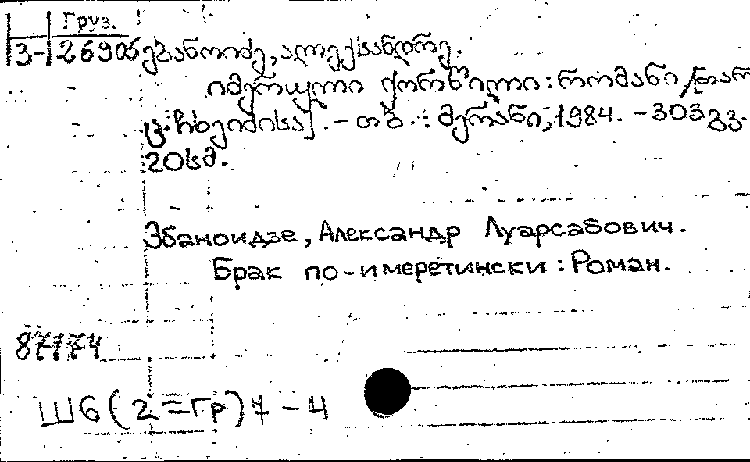 Груз.
3-26905
ებანოიძე, ალექსანდრე.
იმერული ქორწილი : რომანი / თარ
ც. ჩხეიძისა]. - თბ. : მერანი, 1984. - 303 გვ.
20 სმ.
Эбаноидзе, Александр Луарсабович.
Брак по-имеретински : Роман.
87174
Ш6(2=Гр)7-4